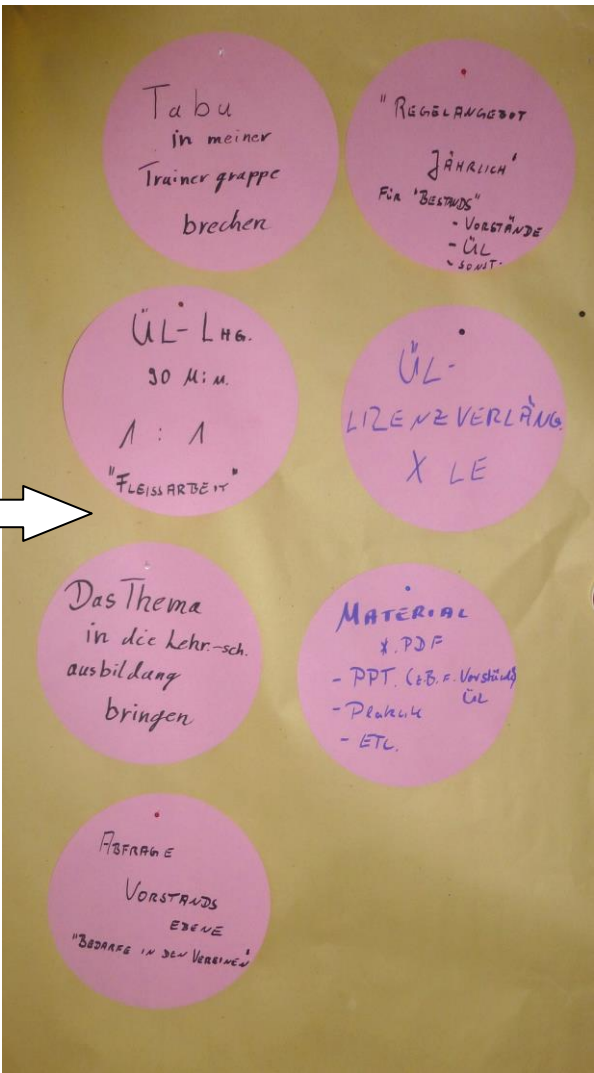 Tabu
in meiner
Trainergruppe
brechen
"REGELANGEBOT
JÄHRLICH"
FÜR "BESTANDS"
- VORSTÄNDE
- ÜL
- SONST.
ÜL-LHG.
90 Min.
1 : 1
"FLEISSARBEIT"
ÜL-
LIZENZVERLÄNG.
X LE
Das Thema
in die Lehr.-sch.
ausbildung
bringen
MATERIAL
X.PDF
- PPT. (z.B. F. Vorstände
ÜL
- Plakate
- ETC.
ABFRAGE
VORSTANDS
EBENE
"BEDARFE IN DEN VEREINEN"